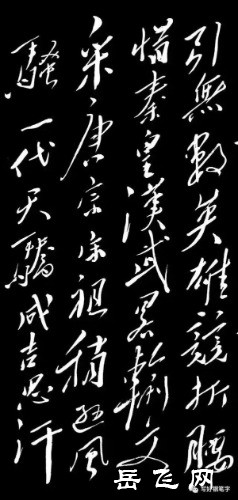 引無數英雄競折腰
惜秦皇漢武畧輸文
采唐宗宋祖稍遜風
騷一代天驕成吉思汗
写好钢笔字
岳飞网